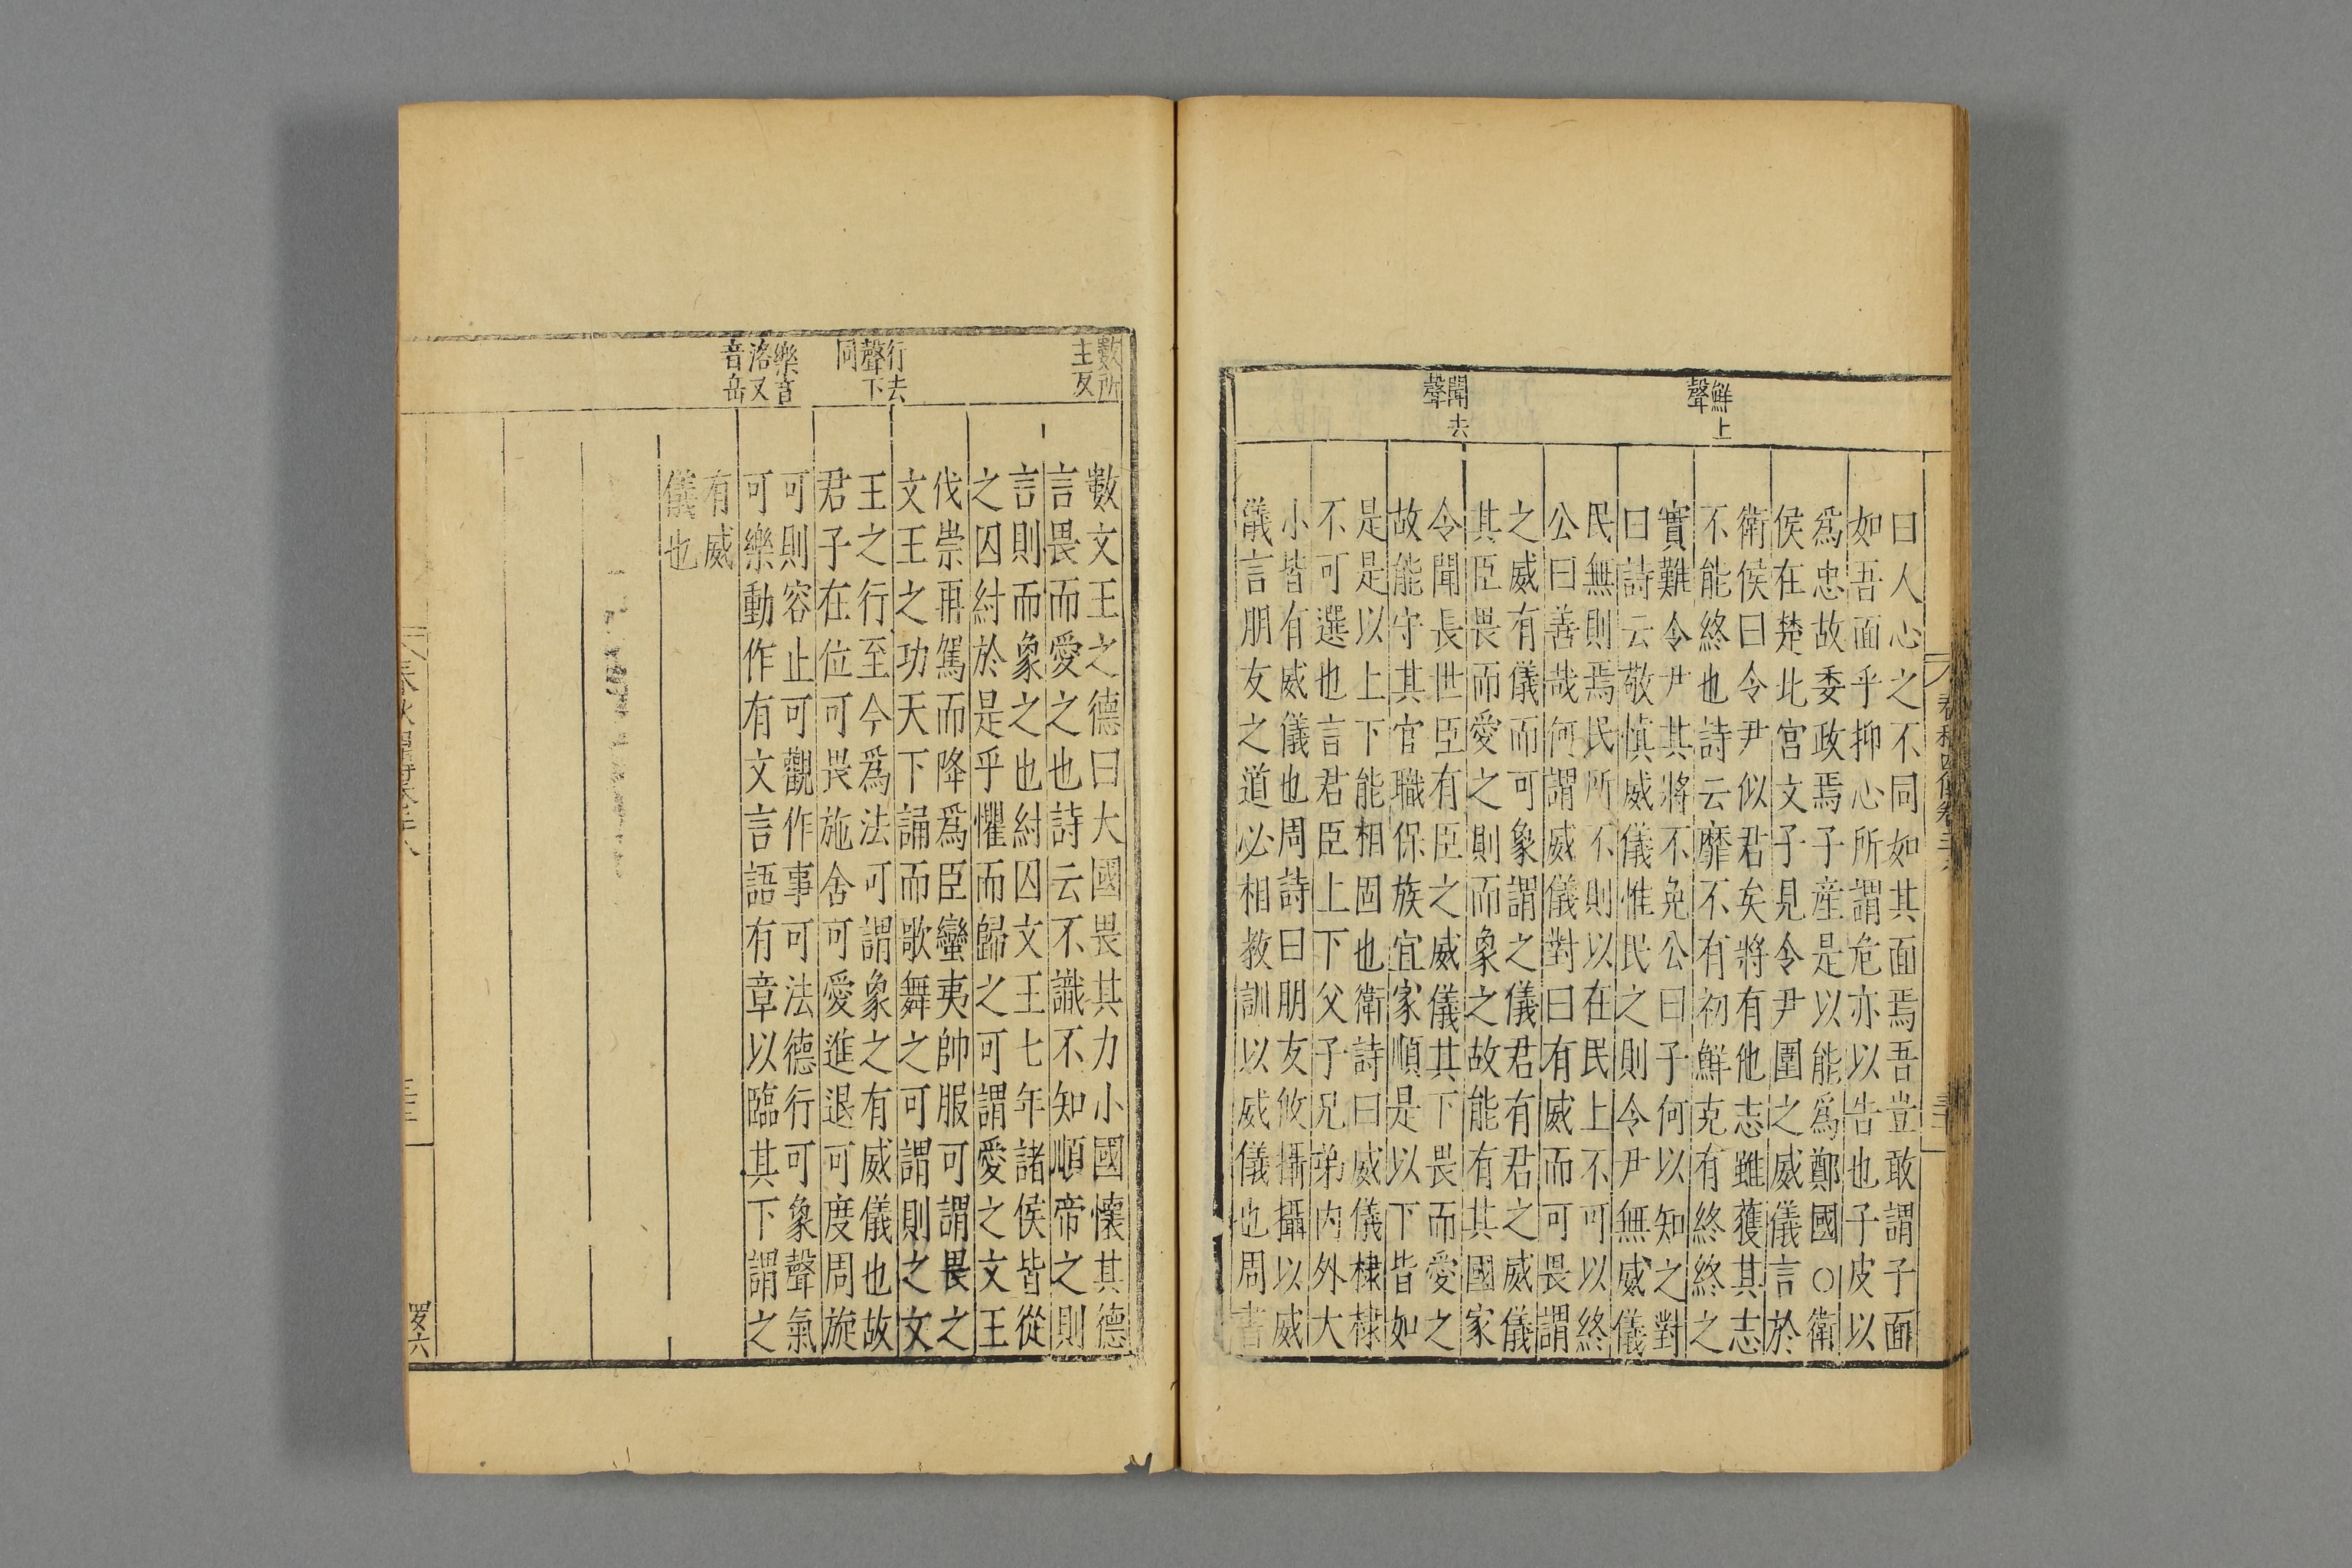 鮮上
聲
聞去
聲
曰人心之不同如其面焉吾豈敢謂子面
如吾面乎抑心所謂危亦以告也子皮以
爲忠故委政焉子産是以能爲鄭國○衛
侯在楚北宮文子見令尹圍之威儀言於
衛侯曰令尹似君矣將有他志雖獲其志
不能終也詩云靡不有初鮮克有終終之
實難令尹其將不免公曰子何以知之對
曰詩云敬慎威儀惟民之則令尹無威儀
民無則焉民所不則以在民上不可以終
公曰善哉何謂威儀對曰有威而可畏謂
之威有儀而可象謂之儀君有君之威儀
其臣畏而愛之則而象之故能有其國家
令聞長世臣有臣之威儀其下畏而愛之
故能守其官職保族宜家順是以下皆如
是是以上下能相固也衛詩曰威儀棣棣
不可選也言君臣上下父子兄弟内外大
小皆有威儀也周詩曰朋友攸攝攝以威
儀言朋友之道必相教訓以威儀也周書
數所
主反
行去
聲下
同
樂音
洛又
音岳
數文王之德曰大國畏其力小國懷其德
言畏而愛之也詩云不識不知順帝之則
言則而象之也紂囚文王七年諸侯皆從
之囚紂於是乎懼而歸之可謂愛之文王
伐崇再駕而降爲臣蠻夷帥服可謂畏之
文王之功天下誦而歌舞之可謂則之文
王之行至今爲法可謂象之有威儀也故
君子在位可畏施舍可愛進退可度周旋
可則容止可觀作事可法德行可象聲氣
可樂動作有文言語有章以臨其下謂之
有威
儀也